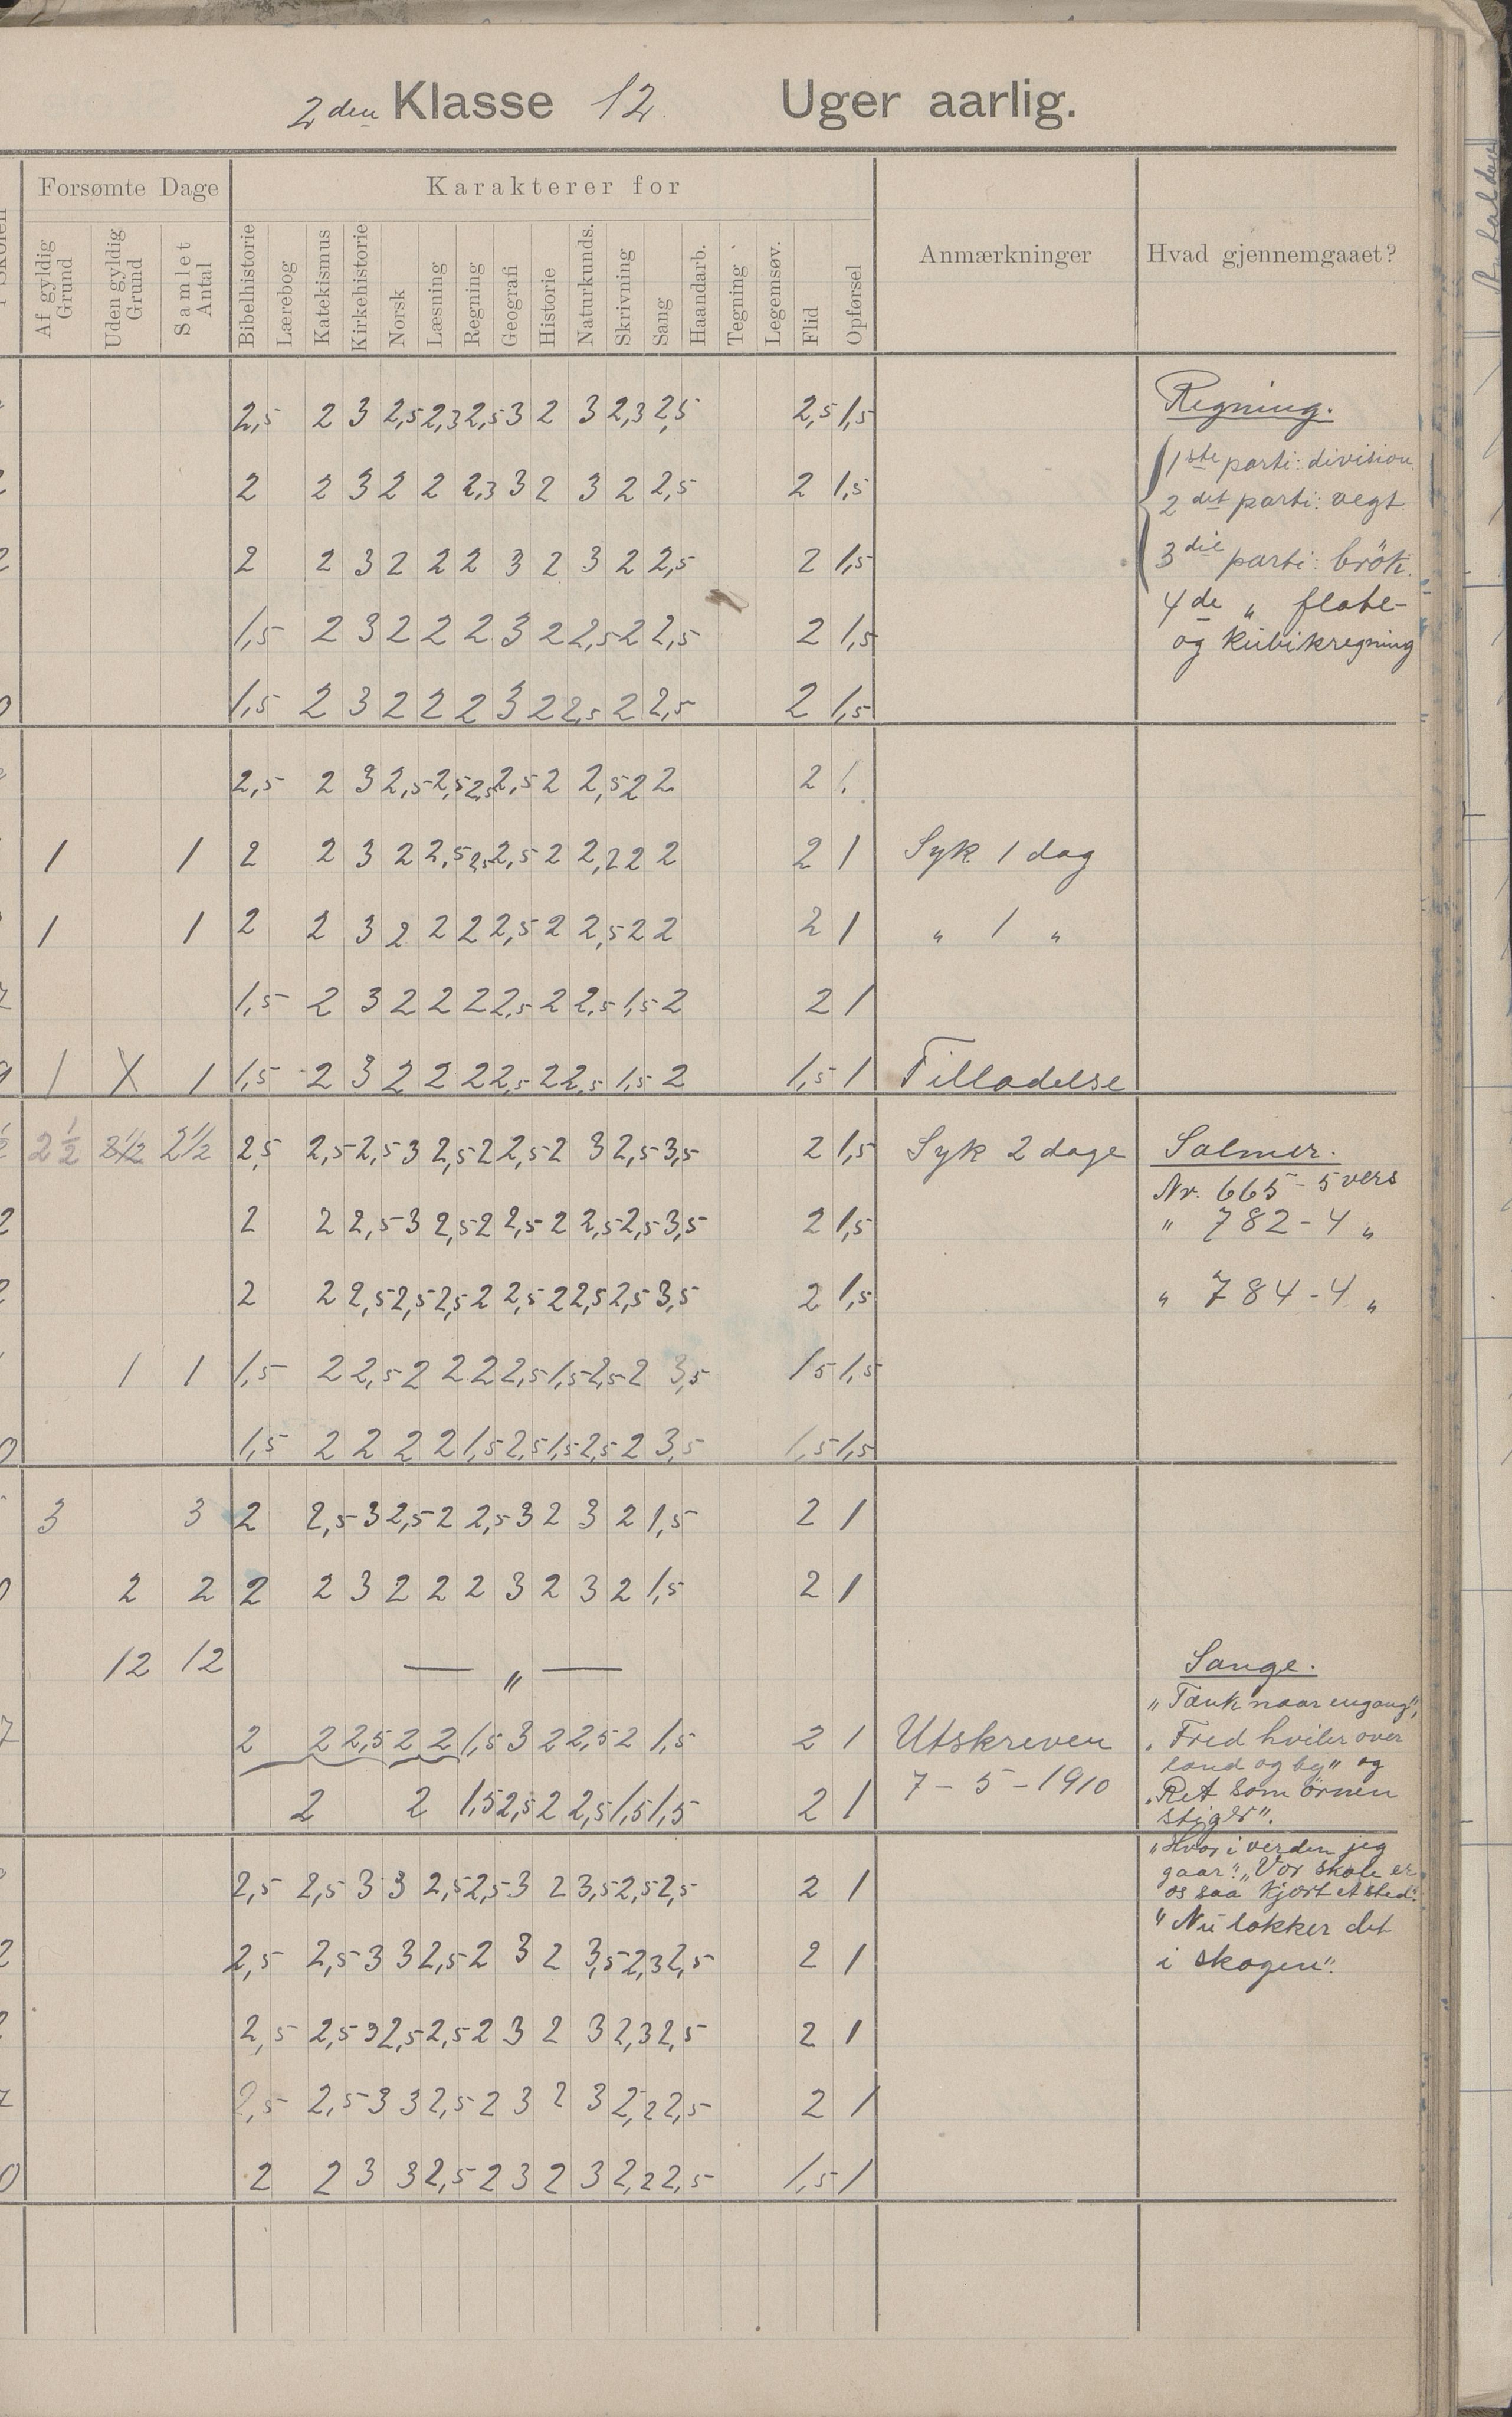 2den Klasse 12 Uger aarlig.
Forsømte Dage Karakterer for Anmærkninger Hvad gjennemgaaet?
Af gyldig Grund Uden gyldig Grund Samlet Antal Bibelhistorie Lærebog Katekismus Kirkehistorie Norsk Læsning Regning Geografi Historie Naturkunds. Skrivning Sang Haandarb. Tegning Legemsøv. Flid Opførsel
2,5 2 3 2,5 2,3 2,5 3 2 3 2,3 2,5 2,5 1,5 Regning.
1ste parti: division
2 2 3 2 2 2,3 3 2 3 2 2,5 2 1,5
2det parti: vegt
2 2 3 2 2 2 3 2 3 2 2,5 2 1,5 3die parti: brök.
4de " flate-
1,5 2 3 2 2 2 3 2 2,5 2 2,5 2 1,5 og kubikregning
1,5 2 3 2 2 2 3 2 2,5 2 2,5 2 1,5
2,5 2 3 2,5 2,5 2,5 2,5 2 2,5 2 2 2 1
1 1 2 2 3 2 2,5 2,5 2,5 2 2,2 2 2 2 1 Syk 1 dag
1 1 2 2 3 2 2 2 2,5 2 2,5 2 2 2 1 " 1 "
1,5 2 3 2 2 2 2,5 2 2,5 1,5 2 2 1
1 1 1,5 2 3 2 2 2 2,5 2 2,5 1,5 2 1,5 1 Tilladelse
2 1/2 2 1/2 2 1/2 2,5 2,5 2,5 3 2,5 2 2,5 2 3 2,5 3,5 2 1,5 Syk 2 dage Salmer.
Nr. 665 - 5 vers
2 2 2,5 3 2,5 2 2,5 2 2,5 2,5 3,5 2 1,5 " 782 - 4 "
2 2 2,5 2,5 2,5 2 2,5 2 2,5 2,5 3,5 2 1,5 " 784 - 4 "
1 1 1,5 2 2,5 2 2 2 2,5 1,5 2,5 2 3,5 1 5 1,5
1,5 2 2 2 2 1,5 2,5 1,5 2,5 2 3,5 1,5 1,5
3 3 2 2,5 3 2,5 2 2,5 3 2 3 2 1,5 2 1
2 2 2 2 3 2 2 2 3 2 3 2 1,5 2 1
12 12 — " — Sange.
"Tænk naar engang",
2 2 2,5 2 2 1,5 3 2 2,5 2 1,5 2 1 Utskreven "Fred hviler over
land og by" og
2 2 1,5 2,5 2 2,5 1,5 1,5 2 1 7 - 5 - 1910 "Ret som örnen
stiger".
"Hvor i verden jeg
2,5 2,5 3 3 2,5 2,5 3 2 3,5 2,5 2,5 2 1 gaar". "Vor skole er
os saa kjært et sted".
"Nu lokker det
2,5 2,5 3 3 2,5 2 3 2 3,5 2,3 2,5 2 1 i skogen".
2,5 2,5 3 2,5 2,5 2 3 2 3 2,3 2,5 2 1
2,5 2,5 3 3 2,5 2 3 2 3 2,2 2,5 2 1
2 2 3 3 2,5 2 3 2 3 2,2 2,5 1,5 1